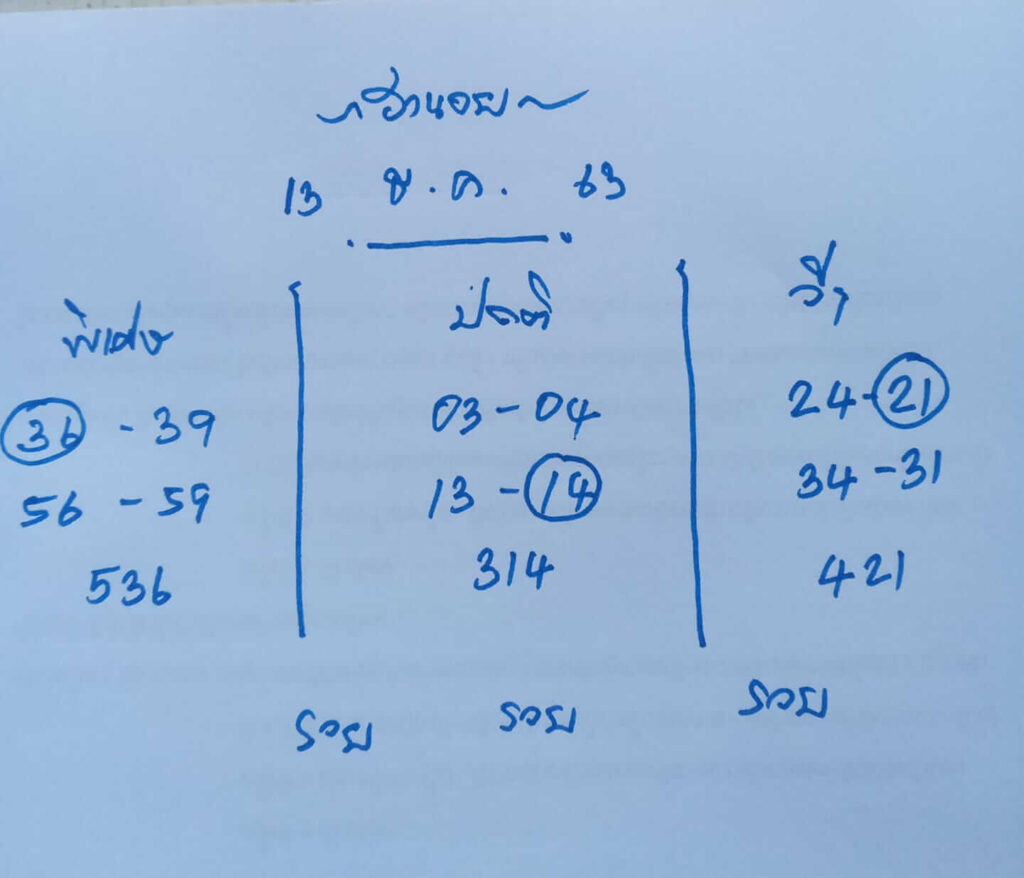 ~ฮานอย~
13 พ.ค. 63
พิเศษ
36 - 39
56 - 59
536
ปกติ
03 - 04
13 - 14
314
วีๆ
24 - 21
34 - 31
421
รวย รวย รวย